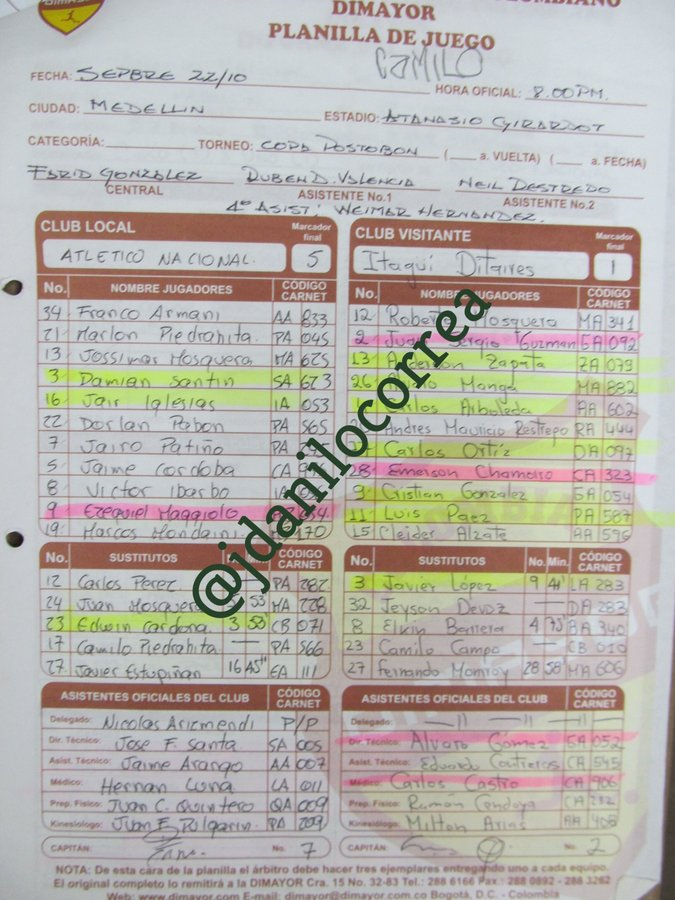 COLOMBIANO
DIMAYOR
DIMAYOR
PLANILLA DE JUEGO
CAMILO
FECHA: SEPBRE 22/10 HORA OFICIAL: 8.00 PM.
CIUDAD: MEDELLIN ESTADIO: ATANASIO GIRARDOT
CATEGORÍA: TORNEO: COPA POSTOBON (___ a. VUELTA) (___ a. FECHA)
FABIO GONZALEZ RUBEN D. VALENCIA NEIL DESTREDO
CENTRAL ASISTENTE No.1 ASISTENTE No.2
4º ASIST: WEIMAR HERNANDEZ.
CLUB LOCAL Marcador final
ATLETICO NACIONAL. 5
No. NOMBRE JUGADORES CÓDIGO CARNET
34 Franco Armani AA 833
21 Marlon Piedrahita. PA 045
13 Jossimar Mosquera MA 625
3 Damian Santin SA 623
16 Jair Iglesias IA 053
22 Dorlan Pabon PA 565
7 Jairo Patiño PA
5 Jaime Cordoba CA
8 Victor Ibarbo IA
9 Ezequiel Maggiolo
19 Marcos Mondaini 170
No. SUSTITUTOS CÓDIGO CARNET
12 Carlos Perez PA 282
24 Juan Mosquera 53 MA 228
23 Edwin Cardona. 3 58 CB 071
17 Camilo Piedrahita. — PA 566
27 Javier Estupiñan 16 45" EA 111
ASISTENTES OFICIALES DEL CLUB CÓDIGO CARNET
Delegado: Nicolas Arizmendi P/P
Dir. Técnico: Jose F. Santa SA 005
Asist. Técnico: Jaime Arango AA 007
Médico: Hernan Luna LA 011
Prep. Físico: Juan C. Quintero QA 009
Kinesiólogo: Juan F. Bulgarin. PA 209
CAPITÁN: No. 7
CLUB VISITANTE Marcador final
Itagui Ditaires 1
No. NOMBRE JUGADORES CÓDIGO CARNET
12 Robert Mosquera MA 341
2 Juan Sergio Guzman GA 092
13 Anderson Zapata ZA 079
26 Manga MA 882
Carlos Arboleda AA 602
Andres Mauricio Restrepo RA 444
Carlos Ortiz DA 097
28 Emerson Chamorro CA 323
9 Cristian Gonzalez GA 054
11 Luis Paez PA 587
15 Cleider Alzate AA 596
No. SUSTITUTOS No. Min. CÓDIGO CARNET
3 Javier López 9 41 LA 283
32 Jeyson Devoz — DA 283
8 Elkin Barrera 4 75 BA 340
23 Camilo Campo — CB 010
27 Fernando Monroy 28 58 MA 606
ASISTENTES OFICIALES DEL CLUB CÓDIGO CARNET
Delegado: — 11 — 11 — 11
Dir. Técnico: Alvaro Gómez GA 052
Asist. Técnico: Eduardo Contreras CA 545
Médico: Carlos Castro CA 906
Prep. Físico: Ramón Cendoya CA 282
Kinesiólogo: Milton Arias AA 408
CAPITÁN: No. 2
@jdanilocorrea
NOTA: De esta cara de la planilla el árbitro debe hacer tres ejemplares entregando uno a cada equipo.
El original completo lo remitirá a la DIMAYOR Cra. 15 No. 32-83 Tel.: 288 6166 Fax.: 288 0892 - 288 3262
Web: www.dimayor.com E-mail: dimayor@dimayor.com.co Bogotá, D.C. - Colombia